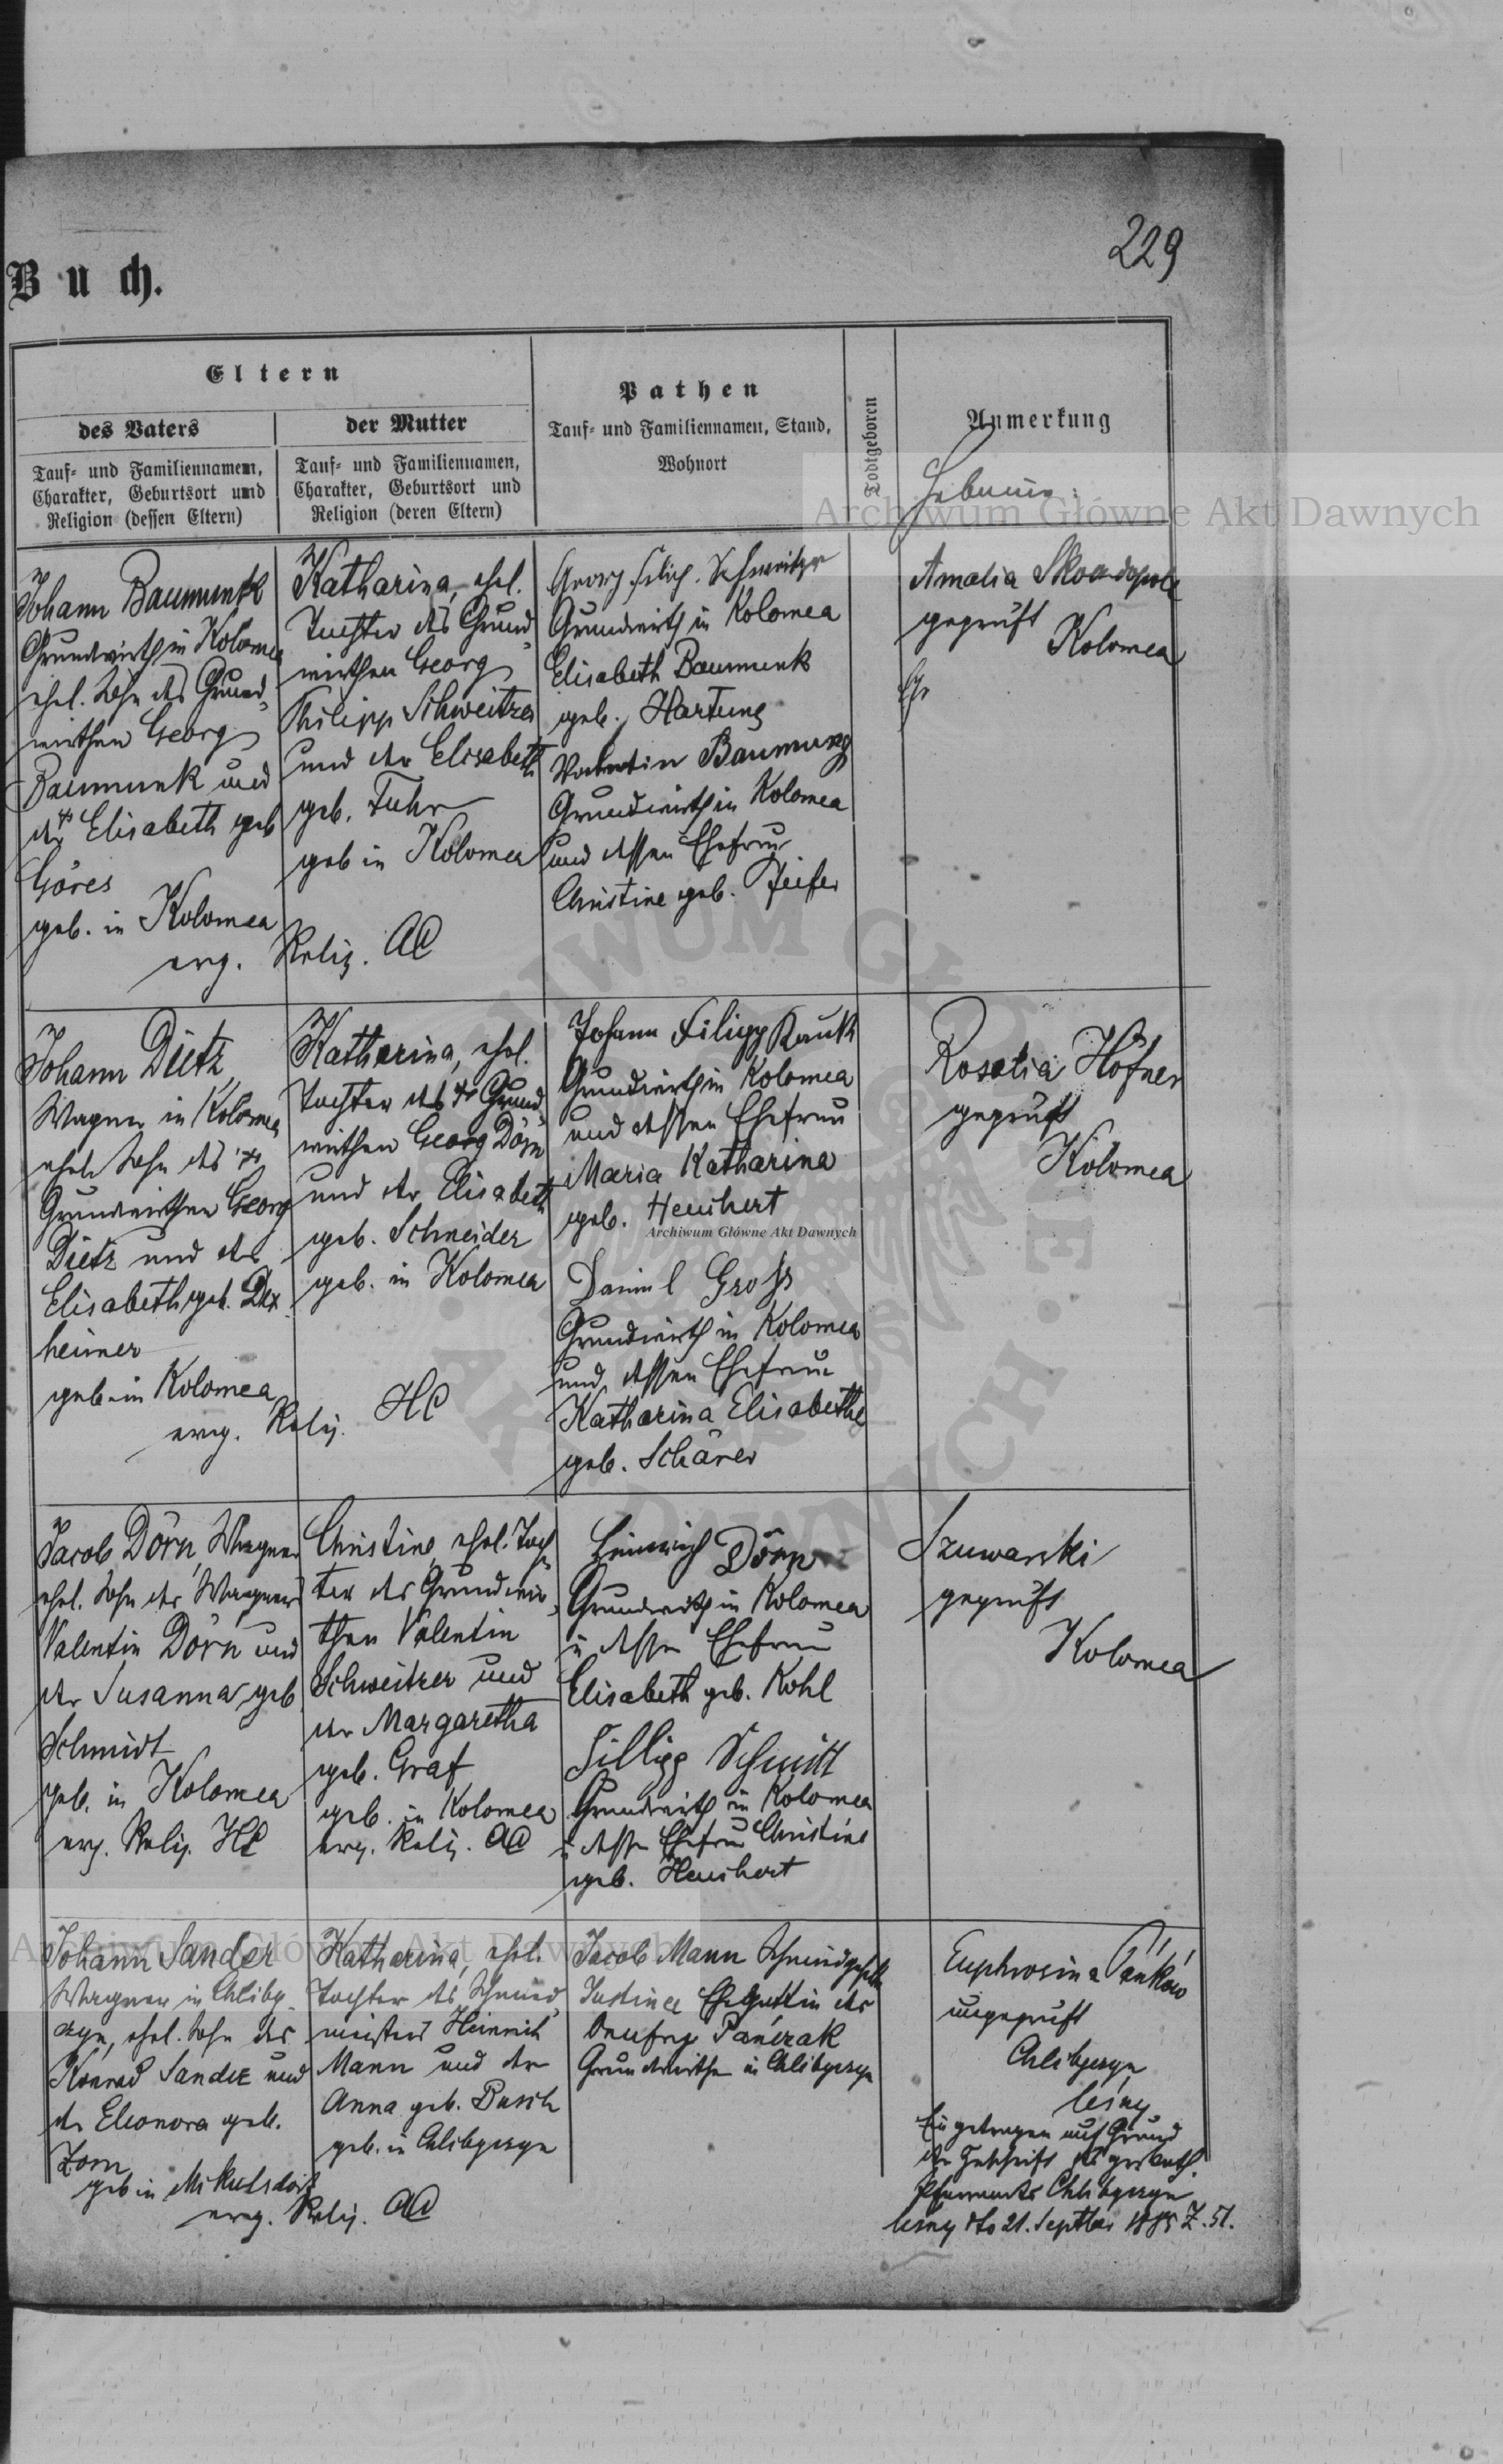 229
Buch.
Eltern
des Vaters
Tauf- und Familiennamen,
Charakter, Geburtsort und
Religion (dessen Eltern)
der Mutter
Tauf- und Familiennamen,
Charakter, Geburtsort und
Religion (deren Eltern)
Pathen
Tauf- und Familiennamen, Stand,
Wohnort
Todtgeboren
Anmerkung
Hebamme:
Archiwum Główne Akt Dawnych
Johann Baumunk
Grundwirth in Kolomea
ehel. Sohn des Grund-
wirthen Georg
Baumunk und
der Elisabeth geb
Göres
geb. in Kolomea
evg. Relig. AC
Katharina, ehel.
Tochter des Grund-
wirthen Georg
Philipp Schweitzer
und der Elisabeth
geb. Fuhr
geb in Kolomea
Georg Filip. Schweitzer
Grundwirth in Kolomea
Elisabeth Baumunk
geb. Hartung
Valentin Baumung
Grundwirth in Kolomea
und dessen Ehefrau
Christine geb. Pfeifer
Amalia
geprüft
Kolomea
Johann Dietz
Wagner in Kolomea
ehel. Sohn des
Grundwirthen Georg
Dietz und der
Elisabeth geb. Dex-
heimer
geb. in Kolomea
evg. Relig. HC
Katharina, ehel.
Tochter des Grund-
wirthen Georg Dörn
und der Elisabeth
geb. Schneider
geb. in Kolomea
Johann Filipp Rauch
Grundwirth in Kolomea
und dessen Ehefrau
Maria Katharina
geb. Heuchert
Archiwum Główne Akt Dawnych
Daniel Groß
Grundwirth in Kolomea
und dessen Ehefrau
Katharina Elisabethe
geb. Schärer
Rosalia Höfner
geprüft
Kolomea
Jacob Dörn, Wagner
ehel. Sohn des Wagners
Valentin Dörn und
der Susanna geb
Schmidt
geb. in Kolomea
evg. Relig. HC
Christine, ehel. Toch-
ter des Grundwir-
then Valentin
Schweitzer und
der Margaretha
geb. Graf
geb. in Kolomea
evg. Relig. AC
Heinrich Dörn
Grundwirth in Kolomea
u dessen Ehefrau
Elisabeth geb. Kohl
Fillipp Schmitt
Grundwirth in Kolomea
u dessen Ehefrau Christine
geb. Heuchert
Szuwarski
geprüft
Kolomea
Archiwum Główne Akt Dawnych
Johann Sander
Wagner in Chliby-
czyn, ehel. Sohn des
Konrad Sander und
der Eleonora geb.
Zorn
geb in Mikulsdorf
evg. Relig. AC
Katharina, ehel.
Tochter des Schmied-
meisters Heinrich
Mann und der
Anna geb. Busch
geb. in Chlibyczyn
Jacob Mann Schmiedgeselle
Justine Ehegattin des
Onufry Pańczak
Grundwirthen in Chlibyczyn
Euphrosina Pańków
ungeprüft
Chlibyczyn
leśny
Eingetragen auf Grund
der Zuschrift des gr kath.
Pfarramts Chlibyczyn
lesny dto 21. Septber 1885 Z. 51.